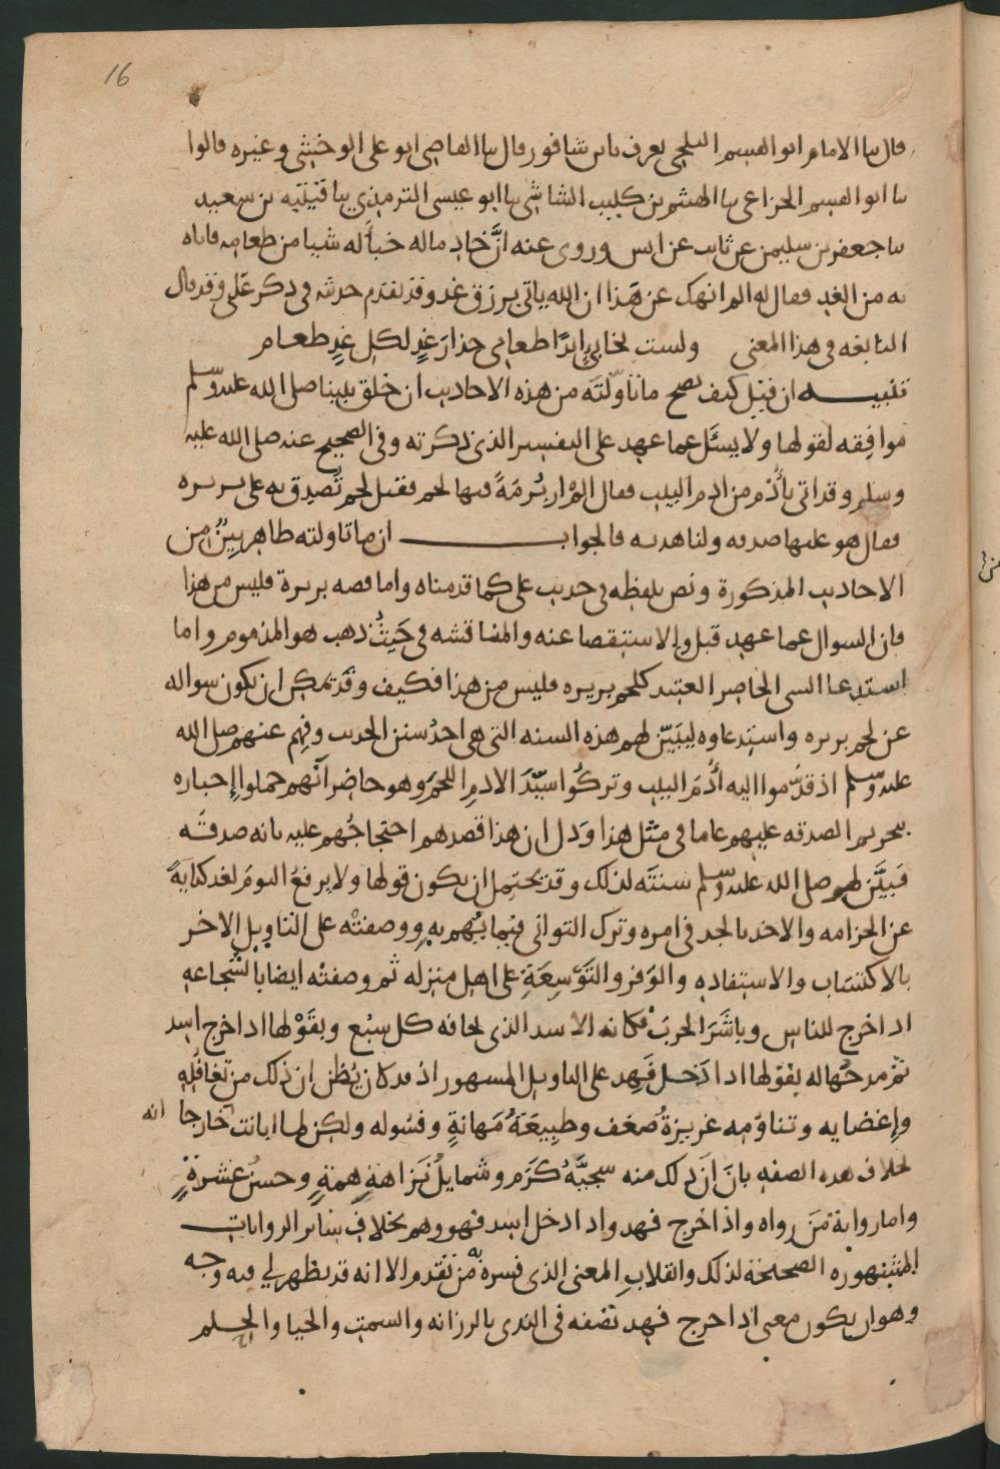 16
قال نا الامام ابو القسم البلخي يعرف بابن شافور قال نا القاضي ابو علي الوخشي وغيره قالوا
نا ابو القسم الخزاعي نا الهيثم بن كليب الشاشي نا ابو عيسى الترمذي نا قتيبه بن سعيد
نا جعفر بن سليمن عن ثابت عن انس وروي عنه انَّ خادما له خبأ له شيا من طعامه فاتاه
به من الغد فقال له الم انهك عن هذا ان الله ياتي برزق غد وقد تقدم حديثه في ذكر علي وقد قال
النابغه في هذا المعنى ولست بخابئٍ ابدًا طعامي حذارَ غدٍ لكل غدٍ طعام
تنبيه ان قيل كيف يصح ما تأوّلتَه من هذه الاحاديث ان خلق نبينا صلى الله عليه وسلم
موافِقه لقولها ولا يسئَل عما عهد على التفسير الذي ذكرته وفي الصحيح عنه صلى الله عليه
وسلم وقد اتي بأُدْم من ادم البيت فقال الم ار بُرمَةً فيها لحم فقيل لحم تُصدِق به على بريره
فقال هو عليها صدقه ولنا هديه فالجواب ان ما تاولته ظاهر بيّنٌ من
الاحاديث المذكورة ونص بلفظه في حديث علي كما قدمناه واما قصه بريرة فليس من هذا
فان السوال عما عهد قبل والاستقصا عنه والمناقشه في حَيثُ ذهب هو المذموم واما
استدعا الشي الحاضر العتيد كلحم بريره فليس من هذا فكيف وقد يمكن ان يكون سواله
عن لحم بريره واستدعاوه ليبَيّن لهم هذه السنه التي هي احدُ سنن الحديث وفهِم عنهم صلى الله
عليه وسلم اذ قدَّموا اليه أُدُمَ البيت وتركُوا سيّدَ الادم اللحمَ وهو حاضر انهم حملوا إخباره
بتحريم الصدقه عليهم عاما في مثل هذا ودل ان هذا قصدهم احتجاجُهم عليه بانه صدقَه
فبيَّن لهم صلى الله عليه وسلم سنتَه لذلك وقد يحتمل ان يكون قولها ولا يرفعُ اليومَ لغد كنايةً
عن الحزامه والاخذ بالجد في امره وترك التواني فيما يَهُم به ووصفتْه على التاويل الاخر
بالاكتساب والاستفاده والوَفر والتَّوسِعَةِ على اهل منزله ثم وصفتْه ايضا بالشجاعه
اذا خرج للناس وباشَرَ الحربَ فكانه الاسد الذي تخافه كل سَبُع وبقَوْلها اذا خرج اسد
ثم مدحُها له بقولها اذا دَخل فَهِد على التاويل المشهور اذ قد كان يُظَن ان ذلك من تغافُلِه
وإغضايه وتناوُمه غريزةُ ضَعف وطبِيعَةُ مَهانةٍ وفسُوله ولكن لما ابانت انه خارجا
بخلاف هذه الصفه بانَ انَ ذلك منه سجيَّةُ كَرَم وشمايلُ نَزاهَةِ هِمةٍ وحسنُ عشرةٍ
واما رواية مَن رواه واذا خرج فهد واذا دخل اسد فهو وهم بخلاف ساير الروايات
المشهوره الصحيحة لذلك وانقلابِ المعنى الذي فسره به من تقدم الا انه قد يظهر لي فيه وجه
وهو ان يكون معنى اذا خرج فهد تصفه في الندي بالرزانه والسمت والحيا والحلم